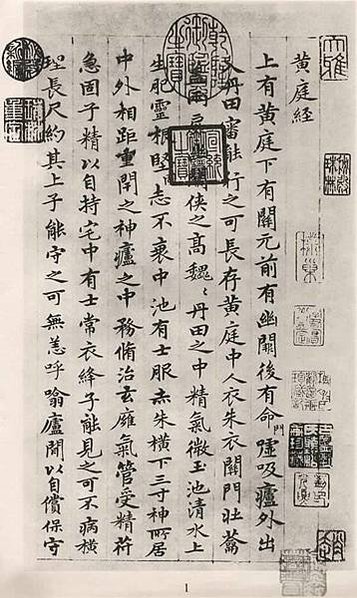 大雅
黄庭経
上有黄庭下有關元前有幽關後有命門嘘吸廬外出
入丹田審能行之可長存黄庭中人衣朱衣關門壮蘥
兩俠之高魏〻丹田之中精氣微玉池清水上
生肥靈根堅志不衰中池有士服赤朱横下三寸神所居
中外相距重閇之神廬之中務脩治玄癰氣管受精苻
急固子精以自持宅中有士常衣絳子能見之可不病横
理長尺約其上子能守之可無恙呼噏廬閒以自償保守
1